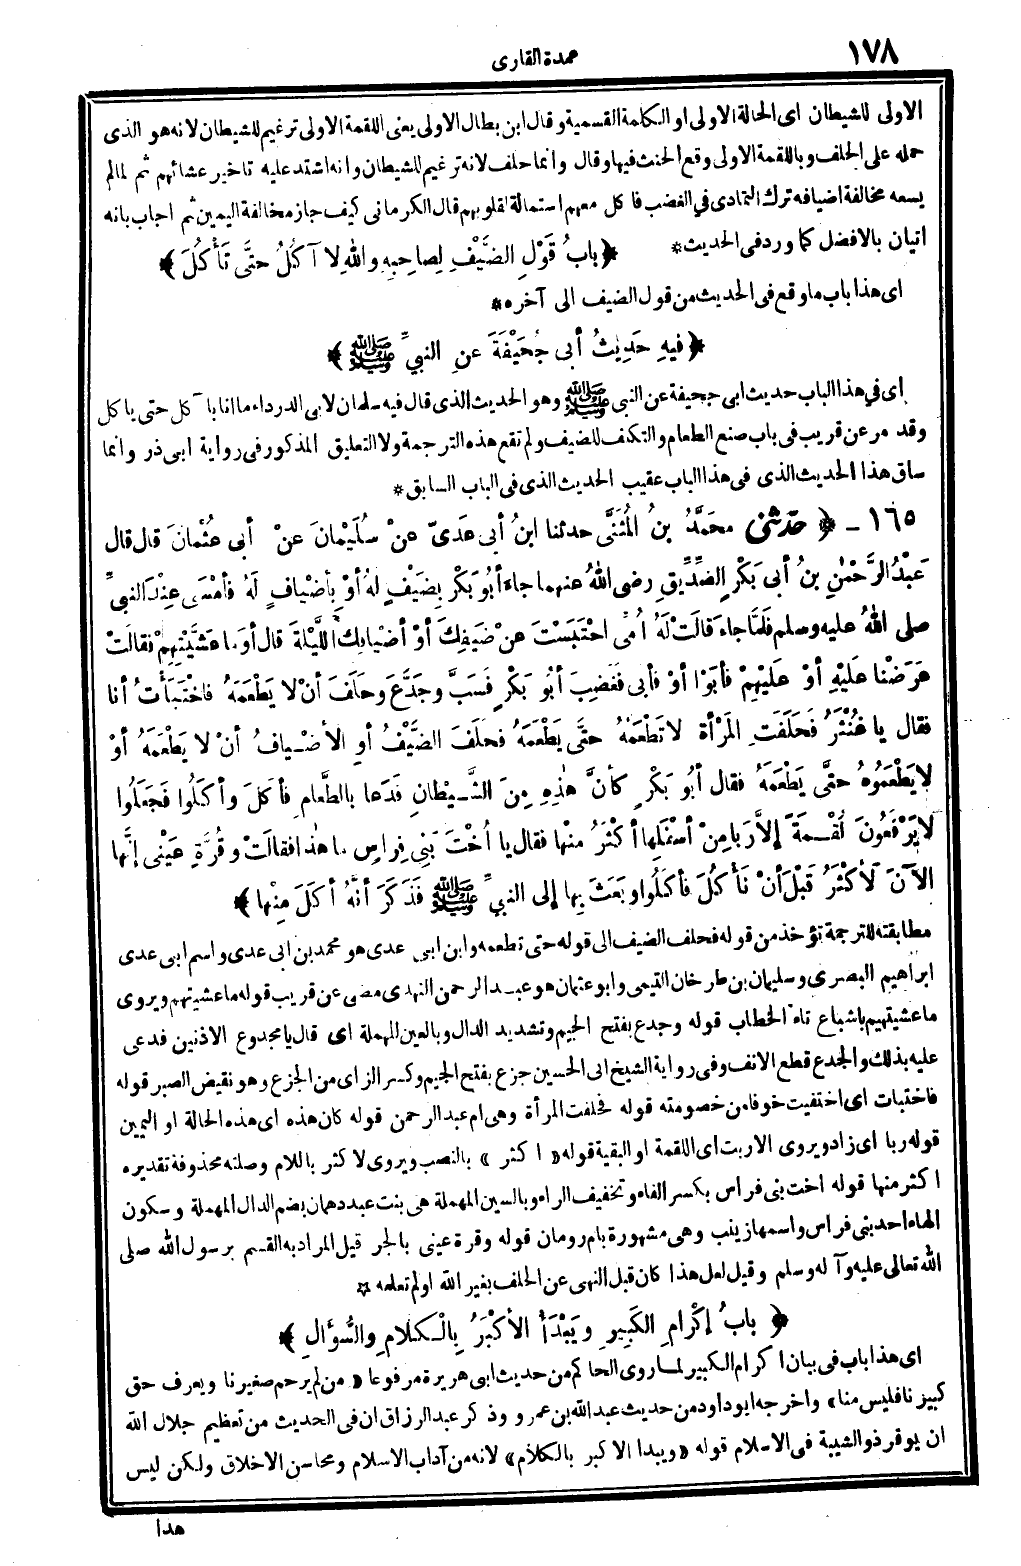 ١٧٨
عمدة القارى
الاولى للشيطان اى الحالة الاولى او الكلمة القسمية وقال ابن بطال الاولى يعنى اللقمة الاولى ترغيم للشيطان لانه هو الذى
حمله على الحلف وباللقمة الاولى وقع الحنث فيها وقال وانما حلف لانه ترغيم للشيطان وانه اشتد عليه تاخير عشائهم ثم لما لم
يسعه مخالفة اضيافه ترك التمادى في الغضب فاكل معهم استمالة لقلوبهم قال الكرمانى كيف جاز مخالفة اليمين ثم اجاب بانه
اتيان بالافضل كما ورد فى الحديث*
﴿ بابُ قَوْلِ الضَّيْفِ لِصاحِبِهِ واللهِ لا آكُلُ حتَّى تَأْكُلَ ﴾
اى هذا باب ما وقع فى الحديث من قول الضيف الى آخره *
﴿ فيهِ حَدِيثُ أبى جُحَيْفَةَ عنِ النبيِّ ﷺ ﴾
اى في هذا الباب حديث ابى جحيفة عن النبى ﷺ وهو الحديث الذى قال فيه سلمان لابى الدرداء ما انا با آكل حتى ياكل
وقد مر عن قريب فى باب صنع الطعام والتكلف للضيف ولم تقع هذه الترجمة ولا التعليق المذكور فى رواية ابى ذر وانما
ساق هذا الحديث الذى فى هذا الباب عقيب الحديث الذى فى الباب السابق *
١٦٥ - ﴿ حدّثنى محَمَّدُ بنُ المُثَنَّى حدثنا ابنُ أبى عَدِىّ عنْ سُلَيْمانَ عنْ أبى عُثْمانَ قال قال
عَبْدُ الرَّحْمٰنِ بنُ أبى بَكْرٍ الصِّدِّيقِ رضى اللهُ عنهما جاءَ أبُو بَكْرٍ بِضَيْفٍ لهُ أوْ بِأضْيافٍ لَهُ فأمْسَى عِنْدَ النبيِّ
صلى اللهُ عليه وسلم فَلَمَّا جاءَ قالَتْ لَهُ أُمِّى احْتَبَسْتَ عنْ ضَيْفِكَ أوْ أضْيافِكَ اللَّيْلَةَ قال أوَ ما عَشَّيْتِهِمْ فقالَتْ
عَرَضْنا علَيْهِ أوْ علَيْهِمْ فأبَوْا أوْ فأبى فغَضِبَ أبُو بَكْرٍ فَسَبَّ وجَدَّعَ وحَلَفَ أنْ لا يَطْعَمَهُ فاخْتَبَأْتُ أنا
فقال يا غُنْثَرُ فَحَلَفَتِ المَرْأةُ لا تَطْعَمُهُ حتَّى يَطْعَمَهُ فحلَفَ الضَّيْفُ أوِ الأضْيافُ أنْ لا يَطْعَمَهُ أوْ
لا يَطْعَمُوهُ حتَّى يَطْعَمَهُ فقال أبُو بَكْرٍ كأنَّ هٰذِهِ مِنَ الشَّيْطانِ فَدَعا بالطَّعامِ فأكَلَ وأكَلُوا فجَعَلُوا
لا يَرْفَعُونَ لُقْمَةً إلاَّ رَبا مِنْ أسْفَلِها أكْثَرُ منْها فقال يا أُخْتَ بَنِى فِراسٍ ما هٰذا فقالَتْ وقُرَّةِ عَيْنِى إنَّها
الآنَ لَأكْثَرُ قَبْلَ أنْ نَأْكُلَ فأكَلُوا وبَعَثَ بِها إلى النبيِّ ﷺ فَذَكَرَ أنَّهُ أكَلَ مِنْها ﴾
مطابقته للترجمة تؤخذ من قوله فحلف الضيف الى قوله حتى تطعمه وابن ابى عدى هو محمد بن ابى عدى واسم ابى عدى
ابراهيم البصرى وسليمان بن طرخان التيمى وابو عثمان هو عبد الرحمن النهدى مضى عن قريب قوله ما عشيتهم ويروى
ما عشيتيهم باشباع تاء الخطاب قوله وجدع بفتح الجيم وتشديد الدال وبالعين المهملة اى قال يا مجدوع الاذنين فدعى
عليه بذلك والجدع قطع الانف وفى رواية الشيخ ابى الحسين جزع بفتح الجيم وكسر الزاى من الجزع وهو نقيض الصبر قوله
فاختبات اى اختفيت خوفا من خصومته قوله فحلفت المرأة وهى ام عبد الرحمن قوله كان هذه اى هذه الحالة او اليمين
قوله ربا اى زاد ويروى الا ربت اى اللقمة او البقية قوله « اكثر » بالنصب ويروى لاكثر باللام وصلته محذوفة تقديره
اكثر منها قوله اخت بنى فراس بكسر الفاء وتخفيف الراء وبالسين المهملة هى بنت عبد دهمان بضم الدال المهملة وسكون
الهاء احد بنى فراس واسمها زينب وهى مشهورة بام رومان قوله وقرة عينى بالجر قيل المراد به القسم برسول الله صلى
الله تعالى عليه وآله وسلم وقيل لعل هذا كان قبل النهى عن الحلف بغير الله او لم تعلمه *
﴿ بابُ إكْرامِ الكَبِيرِ ويَبْدَأُ الأكْبَرُ بِالْكلامِ والسُّؤَالِ ﴾
اى هذا باب فى بيان اكرام الكبير لما روى الحاكم من حديث ابى هريرة مرفوعا « من لم يرحم صغيرنا ويعرف حق
كبيرنا فليس منا » واخرجه ابو داود من حديث عبد الله بن عمرو وذكر عبد الرزاق ان فى الحديث من تعظيم جلال الله
ان يوقر ذو الشيبة فى الاسلام قوله « ويبدا الاكبر بالكلام » لانه من آداب الاسلام ومحاسن الاخلاق ولكن ليس
هذا